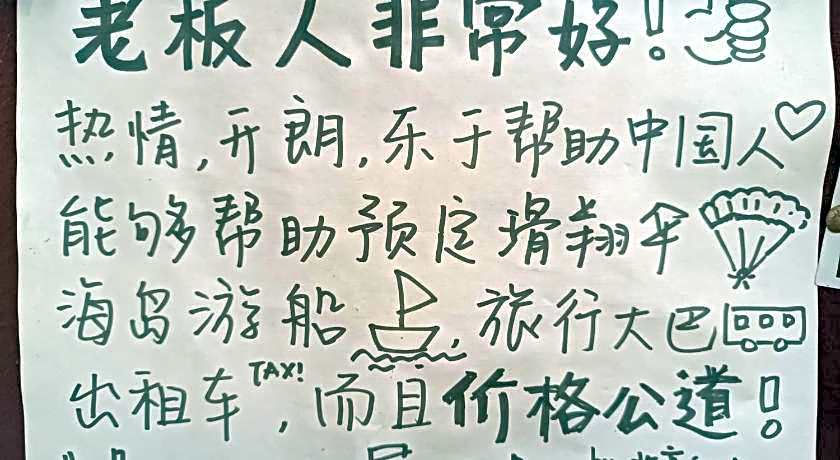 老板人非常好!
热情,开朗,乐于帮助中国人
能够帮助预定滑翔伞
海岛游船,旅行大巴
出租车TAXI,而且价格公道!